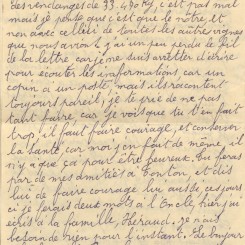 des vendanges de 33.490 Kg, c'est pas mal
mais je pense que c'est que le notre, et
non avec celui de toutes les autres vignes
que nous avons. j'ai un peu perdu le fil
de la lettre, car je me suis arrêter d'écrire
pour écouter les informations, car un
copin a un poste, mais ils racontent
toujours pareil; je te prie de ne pas
tant faire car je vois que tu t'en fait
trop, il faut faire courage, et conserver
la santé, car moi j'en fait de même, il
n'y a que ça pour être heureux. Tu feras
part de mes amitiés à Tonton, et dis
lui de faire courage lui aussi, ces jours
ci je ferais deux mots à l'Oncle, hier j'ai
écris à la famille Héraud. Je n'ais
besoin de rien pour l'instant. Je